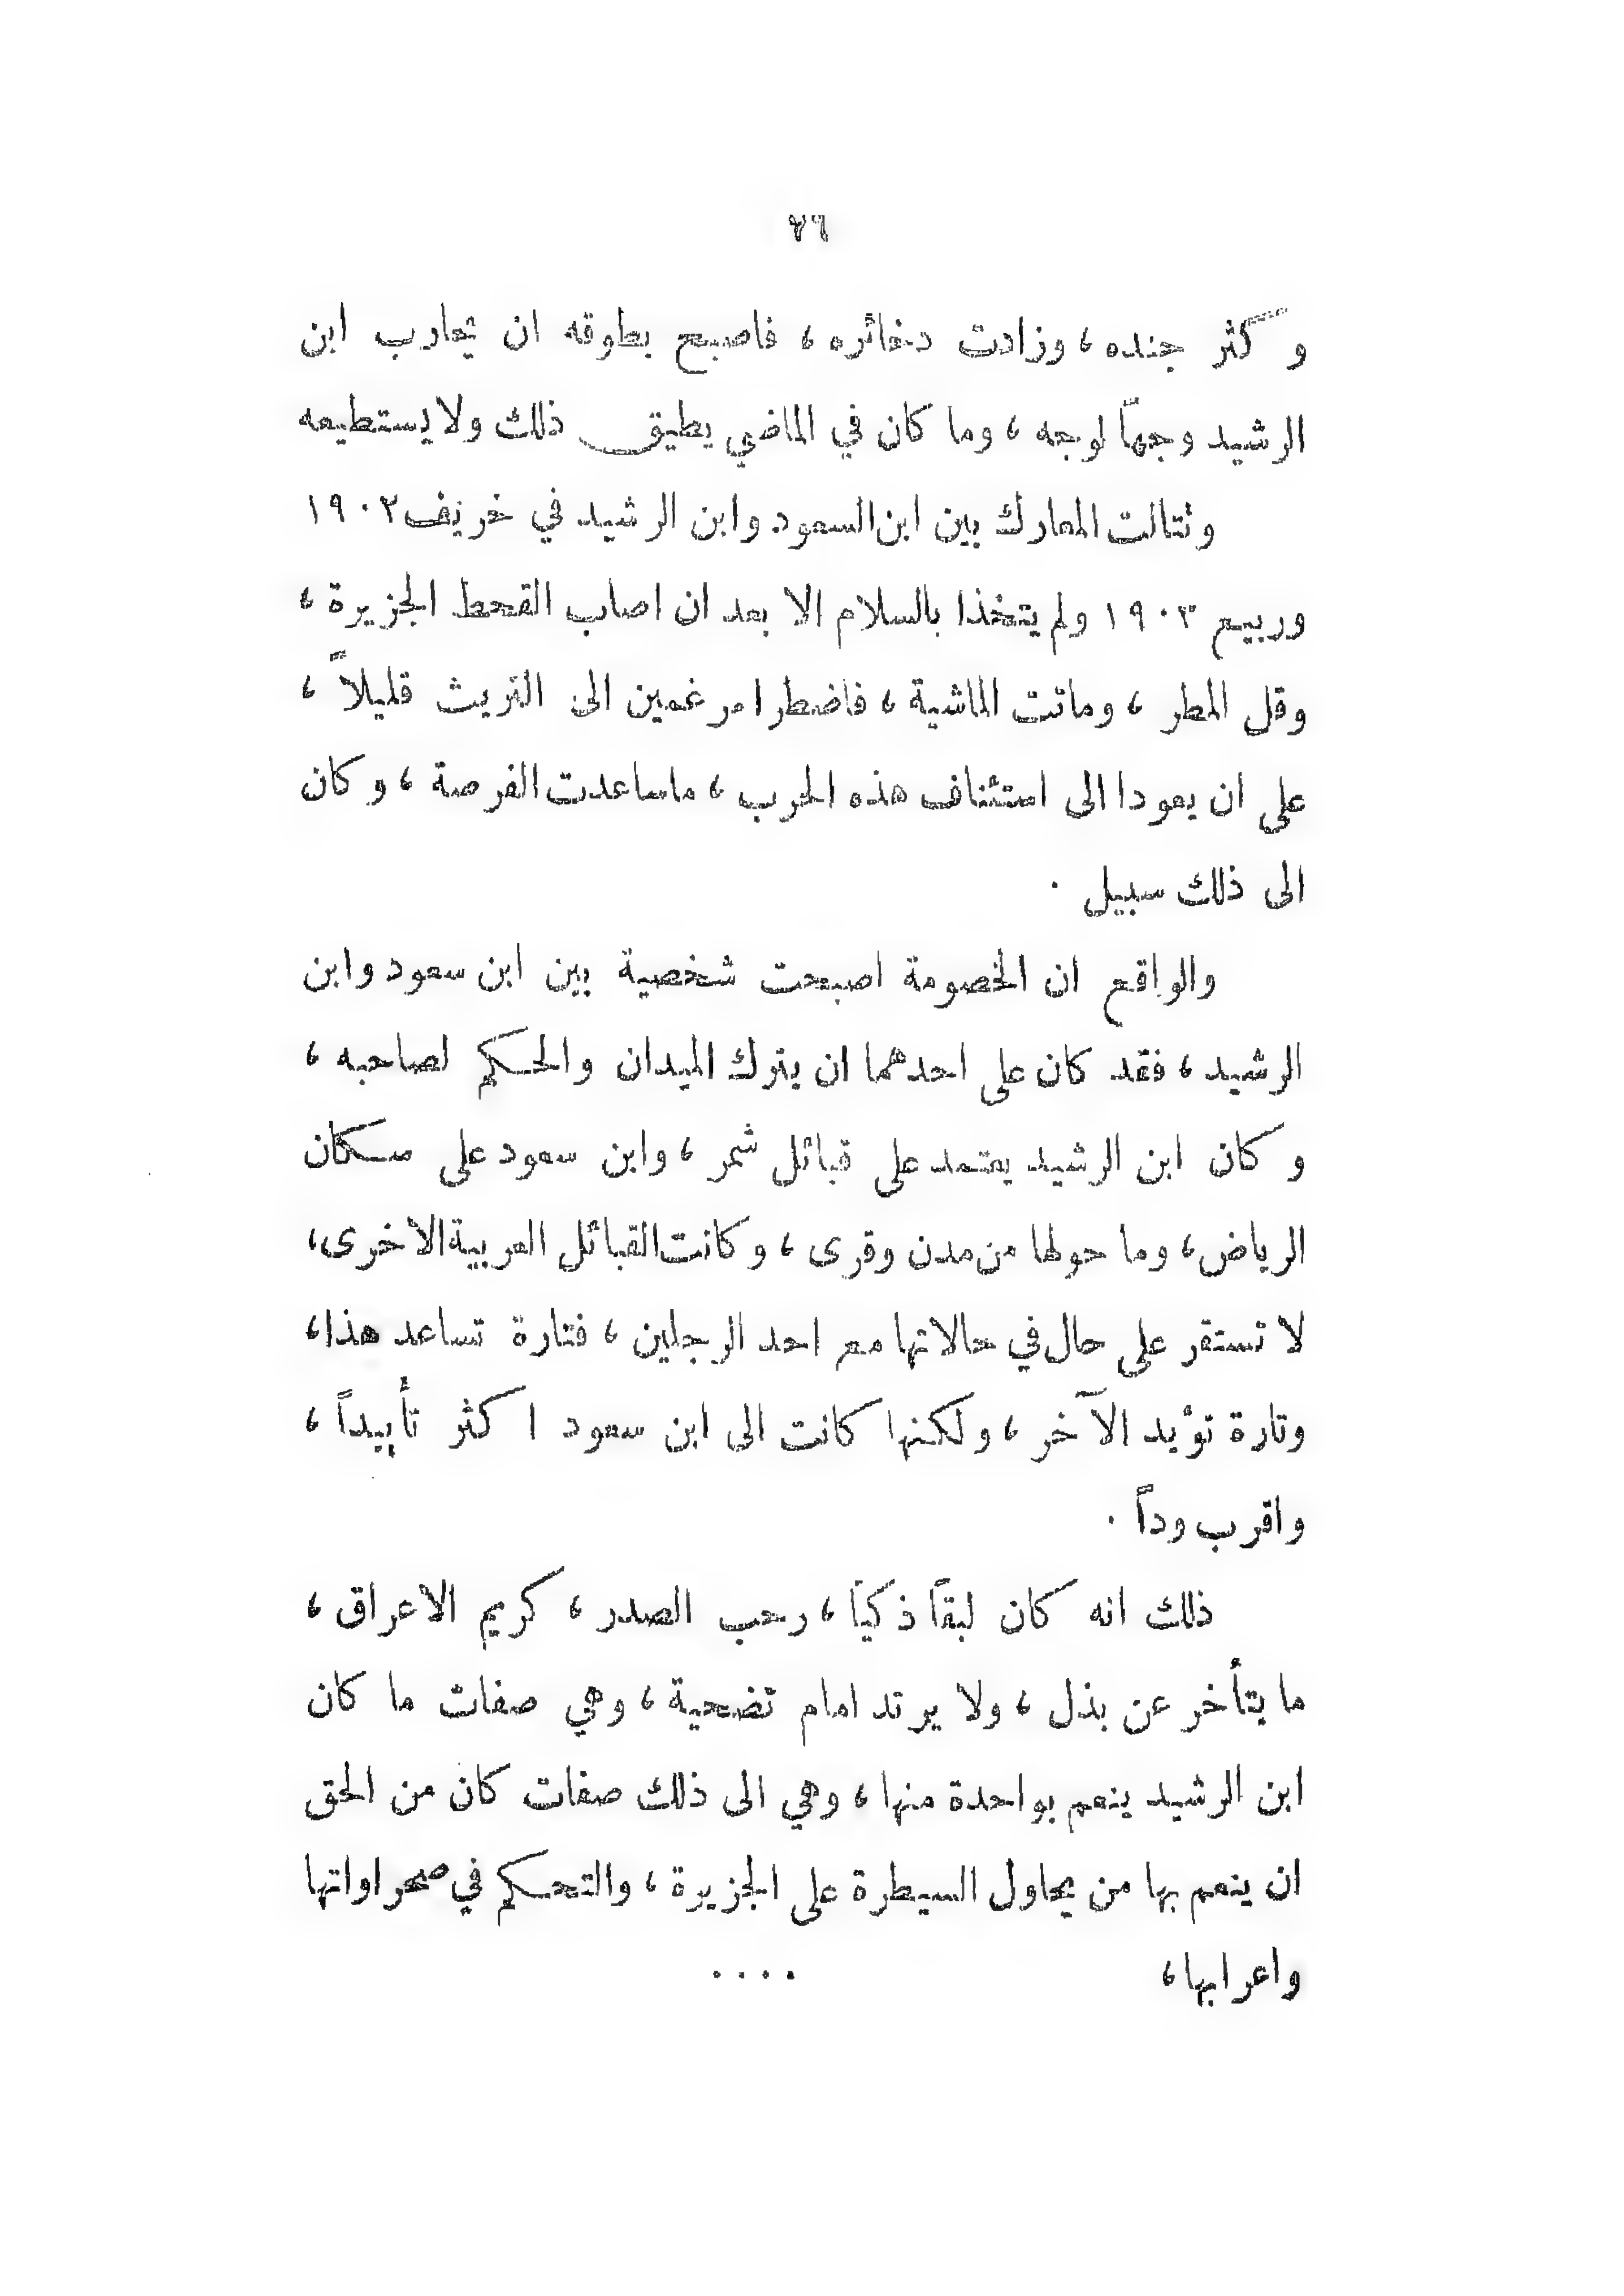 ٧٦
وكثر جنده، وزادت دخائره، فاصبح بطوقه ان يحارب ابن
الرشيد وجهاً لوجه، وما كان في الماضي يطيق ذلك ولا يستطيعه
وتتالت المعارك بين ابن السعود وابن الرشيد في خريف ١٩٠٢
وربيع ١٩٠٣ ولم يتخذا بالسلام الا بعد ان اصاب القحط الجزيرة،
وقل المطر، وماتت الماشية، فاضطرا مرغمين الى التريث قليلاً،
على ان يعودا الى استئناف هذه الحرب، ماساعدت الفرصة، وكان
الى ذلك سبيل.
والواقع ان الخصومة اصبحت شخصية بين ابن سعود وابن
الرشيد، فقد كان على احدهما ان يترك الميدان والحكم لصاحبه،
وكان ابن الرشيد يعتمد على قبائل شمر، وابن سعود على سكان
الرياض، وما حولها من مدن وقرى، وكانت القبائل العربية الاخرى،
لا تستقر على حال في حالاتها مع احد الرجلين، فتارة تساعد هذا،
وتارة تؤيد الآخر، ولكنها كانت الى ابن سعود اكثر تأييداً،
واقرب وداً.
ذلك انه كان لبقاً ذكياً، رحب الصدر، كريم الاعراق،
ما يتأخر عن بذل، ولا يرتد امام تضحية، وهي صفات ما كان
ابن الرشيد ينعم بواحدة منها، وهي الى ذلك صفات كان من الحق
ان ينعم بها من يحاول السيطرة على الجزيرة، والتحكم في صحراواتها
واعرابها، ....